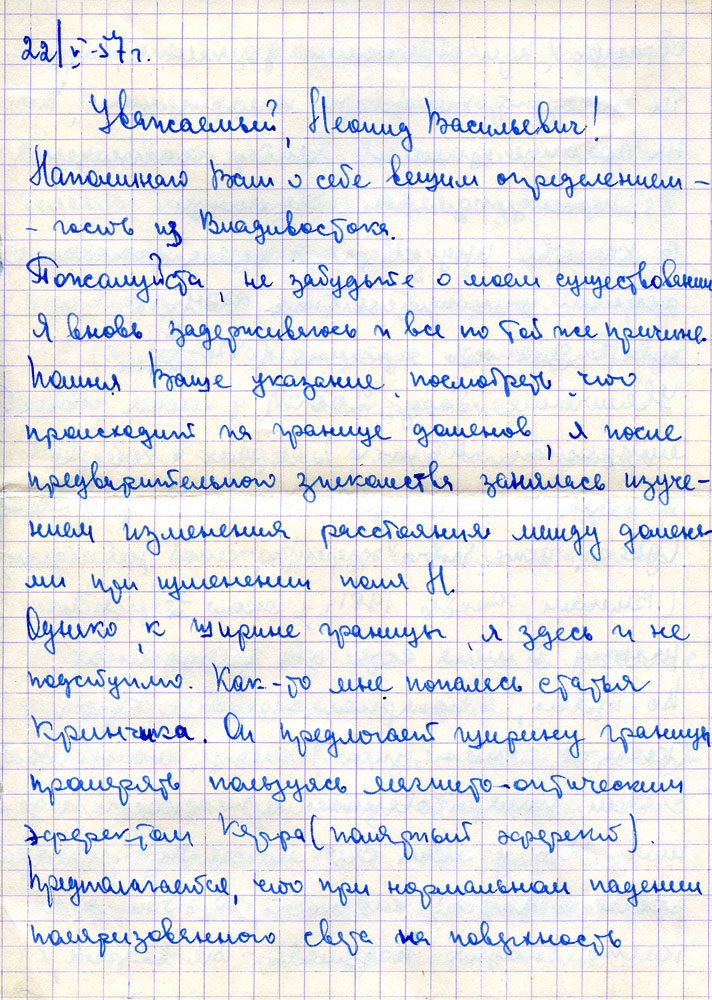 22/V-57 г.
Уважаемый, Леонид Васильевич!
Напоминаю Вам о себе вещим определением -
- гость из Владивостока.
Пожалуйста, не забудьте о моем существовании
Я вновь задерживаюсь и все по той же причине.
Помня Ваше указание, посмотреть, что
происходит на границе доменов, я после
предварительного знакомства занялась изуче-
нием изменения расстояния между домена-
ми при изменении поля H.
Однако, к ширине границы, я здесь и не
подступаю. Как-то мне попалась статья
Кринчика. Он предлагает ширину границы
промерять пользуясь магнито-оптическим
эффектом Керра (полярный эффект).
Предполагается, что при нормальном падении
поляризованного света на поверхность